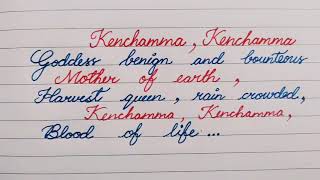 Kenchamma, Kenchamma
Goddess benign and bounteous
Mother of earth,
Harvest queen, rain crowded,
Kenchamma, Kenchamma,
Blood of life ...